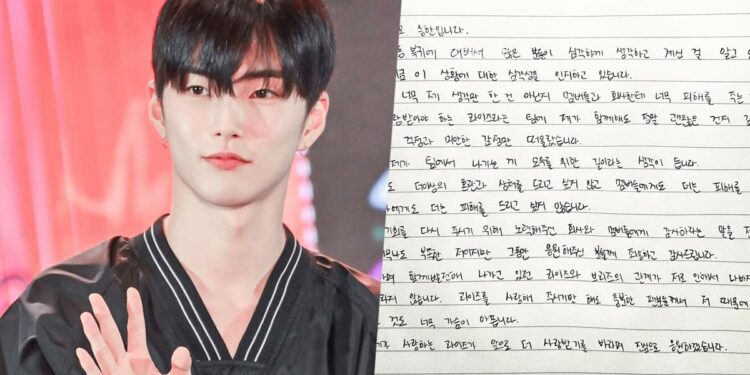 승한입니다.
복귀에 대해서 많은 분들이 심각하게 생각하고 계신 걸 알고
이 상황에 대한 심각성을 인지하고 있습니다.
너무 제 생각만 한 건 아닌지 멤버들과 회사한테 너무 피해를 주는
랑받아야 하는 라이즈라는 팀에 제가 함께해도 정말 괜찮은 건지
걱정과 미안한 감정만 떠올랐습니다.
제가 팀에서 나가는 게 모두를 위한 길이라는 생각이 듭니다.
도 더이상의 혼란과 상처를 드리고 싶지 않고 멤버들에게도 더는 피해를
에게도 더는 피해를 드리고 싶지 않습니다.
기회를 다시 주시기 위해 노력해주신 회사와 멤버들에게 감사하다는 말을 전
무나도 부족한 저이지만 그동안 응원해주신 분들께 죄송하고 감사드립니다.
며 함께 발전해 나가고 있던 라이즈와 브리즈의 관계가 저로 인해서 나빠지
라지 않습니다. 라이즈를 사랑해 주시기만 해도 충분한 팬분들께서 저 때문에
것도 너무 가슴이 아픕니다.
사랑하는 라이즈가 앞으로 더 사랑받기를 바라며 진심으로 응원하겠습니다.